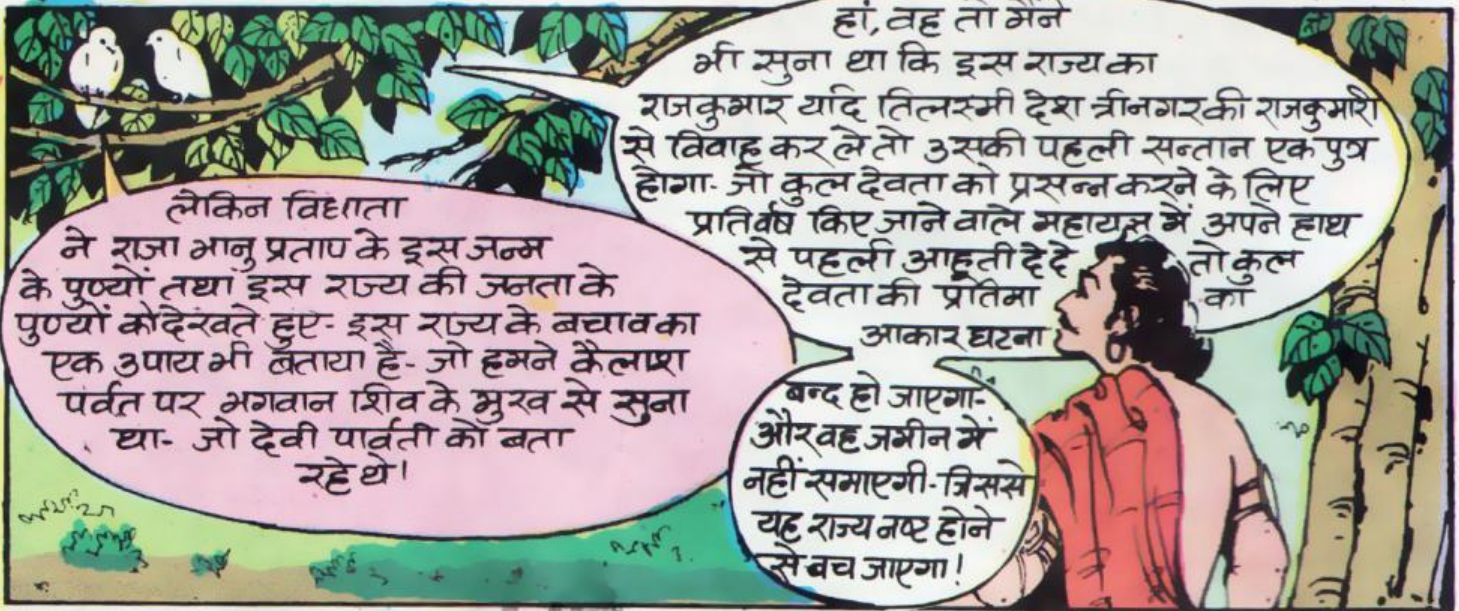 लेकिन विधाता
ने राजा भानु प्रताप के इस जन्म
के पुण्यों तथा इस राज्य की जनता के
पुण्यों को देखते हुए- इस राज्य के बचाव का
एक उपाय भी बताया है- जो हमने कैलाश
पर्वत पर भगवान शिव के मुख से सुना
था- जो देवी पार्वती को बता
रहे थे!
हां, वह तो मैंने
भी सुना था कि इस राज्य का
राजकुमार यदि तिलस्मी देश त्रीनगर की राजकुमारी
से विवाह कर ले तो उसकी पहली सन्तान एक पुत्र
होगा- जो कुल देवता को प्रसन्न करने के लिए
प्रतिवर्ष किए जाने वाले महायज्ञ में अपने हाथ
से पहली आहूती दे दे तो कुल
देवता की प्रतिमा का
आकार घटना
बन्द हो जाएगा-
और वह जमीन में
नहीं समाएगी- जिससे
यह राज्य नष्ट होने
से बच जाएगा!